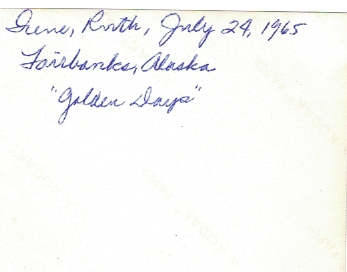 Irene, Ruth, July 24, 1965
Fairbanks, Alaska
"Golden Days"